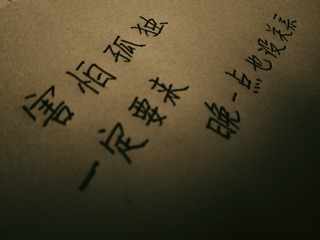 害怕孤独
一定要来
晚一点也没关系